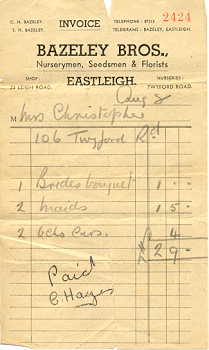 C. H. BAZELEY. INVOICE TELEPHONE: 87214 2424
S. H. BAZELEY. TELEGRAMS: BAZELEY, EASTLEIGH.
BAZELEY BROS.,
Nurserymen, Seedsmen & Florists
SHOP: EASTLEIGH. NURSERIES:
22 LEIGH ROAD. TWYFORD ROAD.
Aug 8
M Mrs Christopher
106 Twyford Rd
1 Brides bouquet 1 - -
2 maids 1 5 -
2 4
£ 2 9 -
Paid
C. Hayes